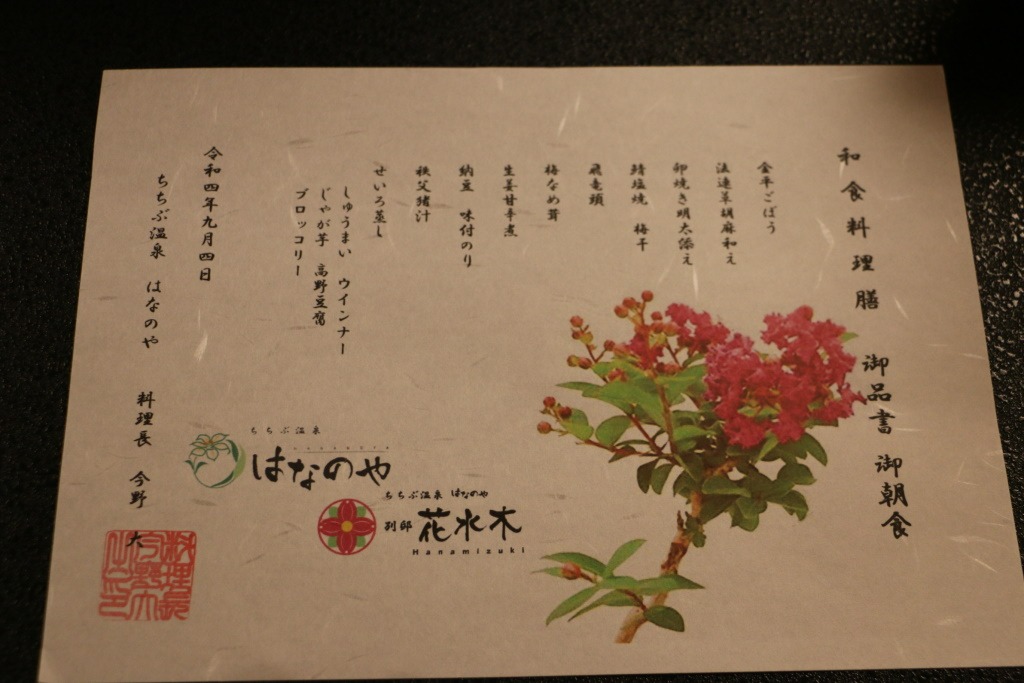 和食料理膳 御品書 御朝食
金平ごぼう
法連草胡麻和え
卵焼き明太添え
鯖塩焼 梅干
飛竜頭
梅なめ茸
生姜甘辛煮
納豆 味付のり
秩父猪汁
せいろ蒸し
しゅうまい ウインナー
じゃが芋 高野豆腐
ブロッコリー
令和四年九月四日
ちちぶ温泉 はなのや
料理長 今野 大
ちちぶ温泉
はなのや
ちちぶ温泉 はなのや
別邸 花水木
Hanamizuki